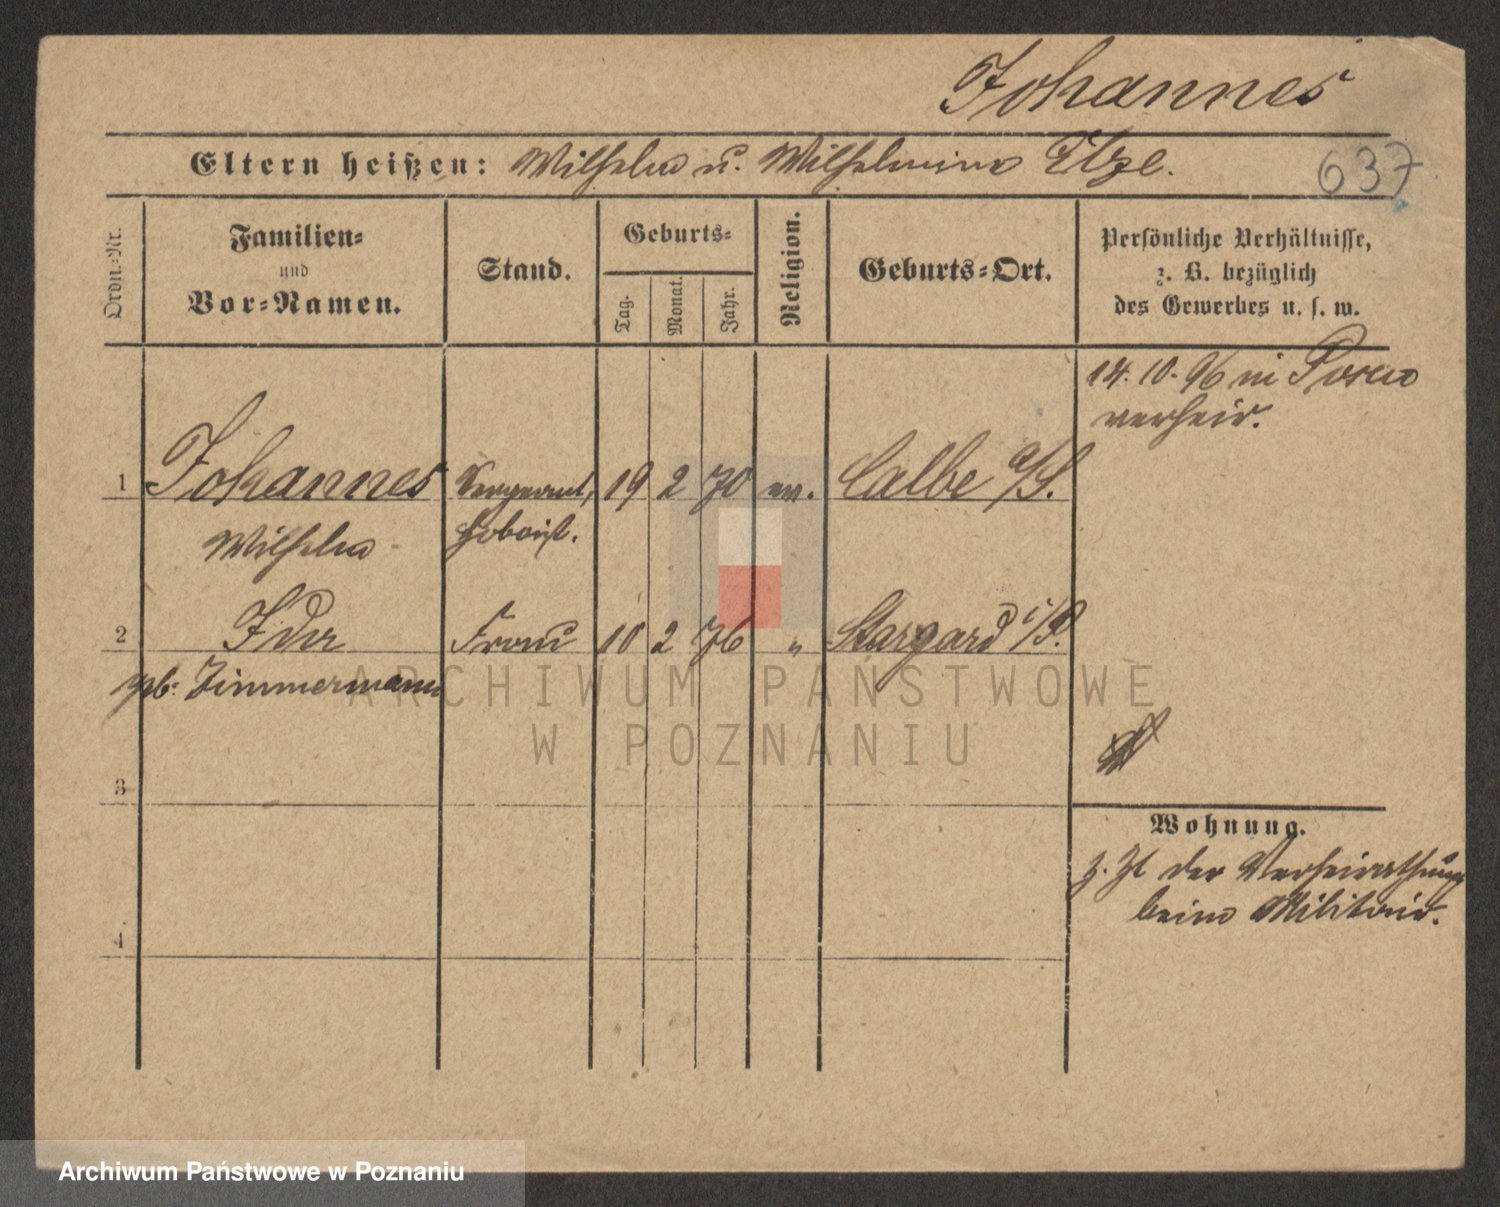 Johannes
Eltern heißen: Wilhelm u. Wilhelmine Elze.
637
Ordn.=Nr.
Familien=
und
Vor=Namen.
Stand.
Geburts=
Tag.
Monat.
Jahr.
Religion.
Geburts=Ort.
Persönliche Verhältnisse,
z. B. bezüglich
des Gewerbes u. s. w.
14. 10. 96 in Posen
verheir.
1 Johannes Sergeant, 19 2 70 ev. Calbe a/S.
Wilhelm Hoboist.
2 Ida Frau 10 2 76 " Stargard i/P.
geb. Zimmermann
3
Wohnung.
z. Zt der Verheirathung
beim Militair.
4
ARCHIWUM PAŃSTWOWE
W POZNANIU
Archiwum Państwowe w Poznaniu